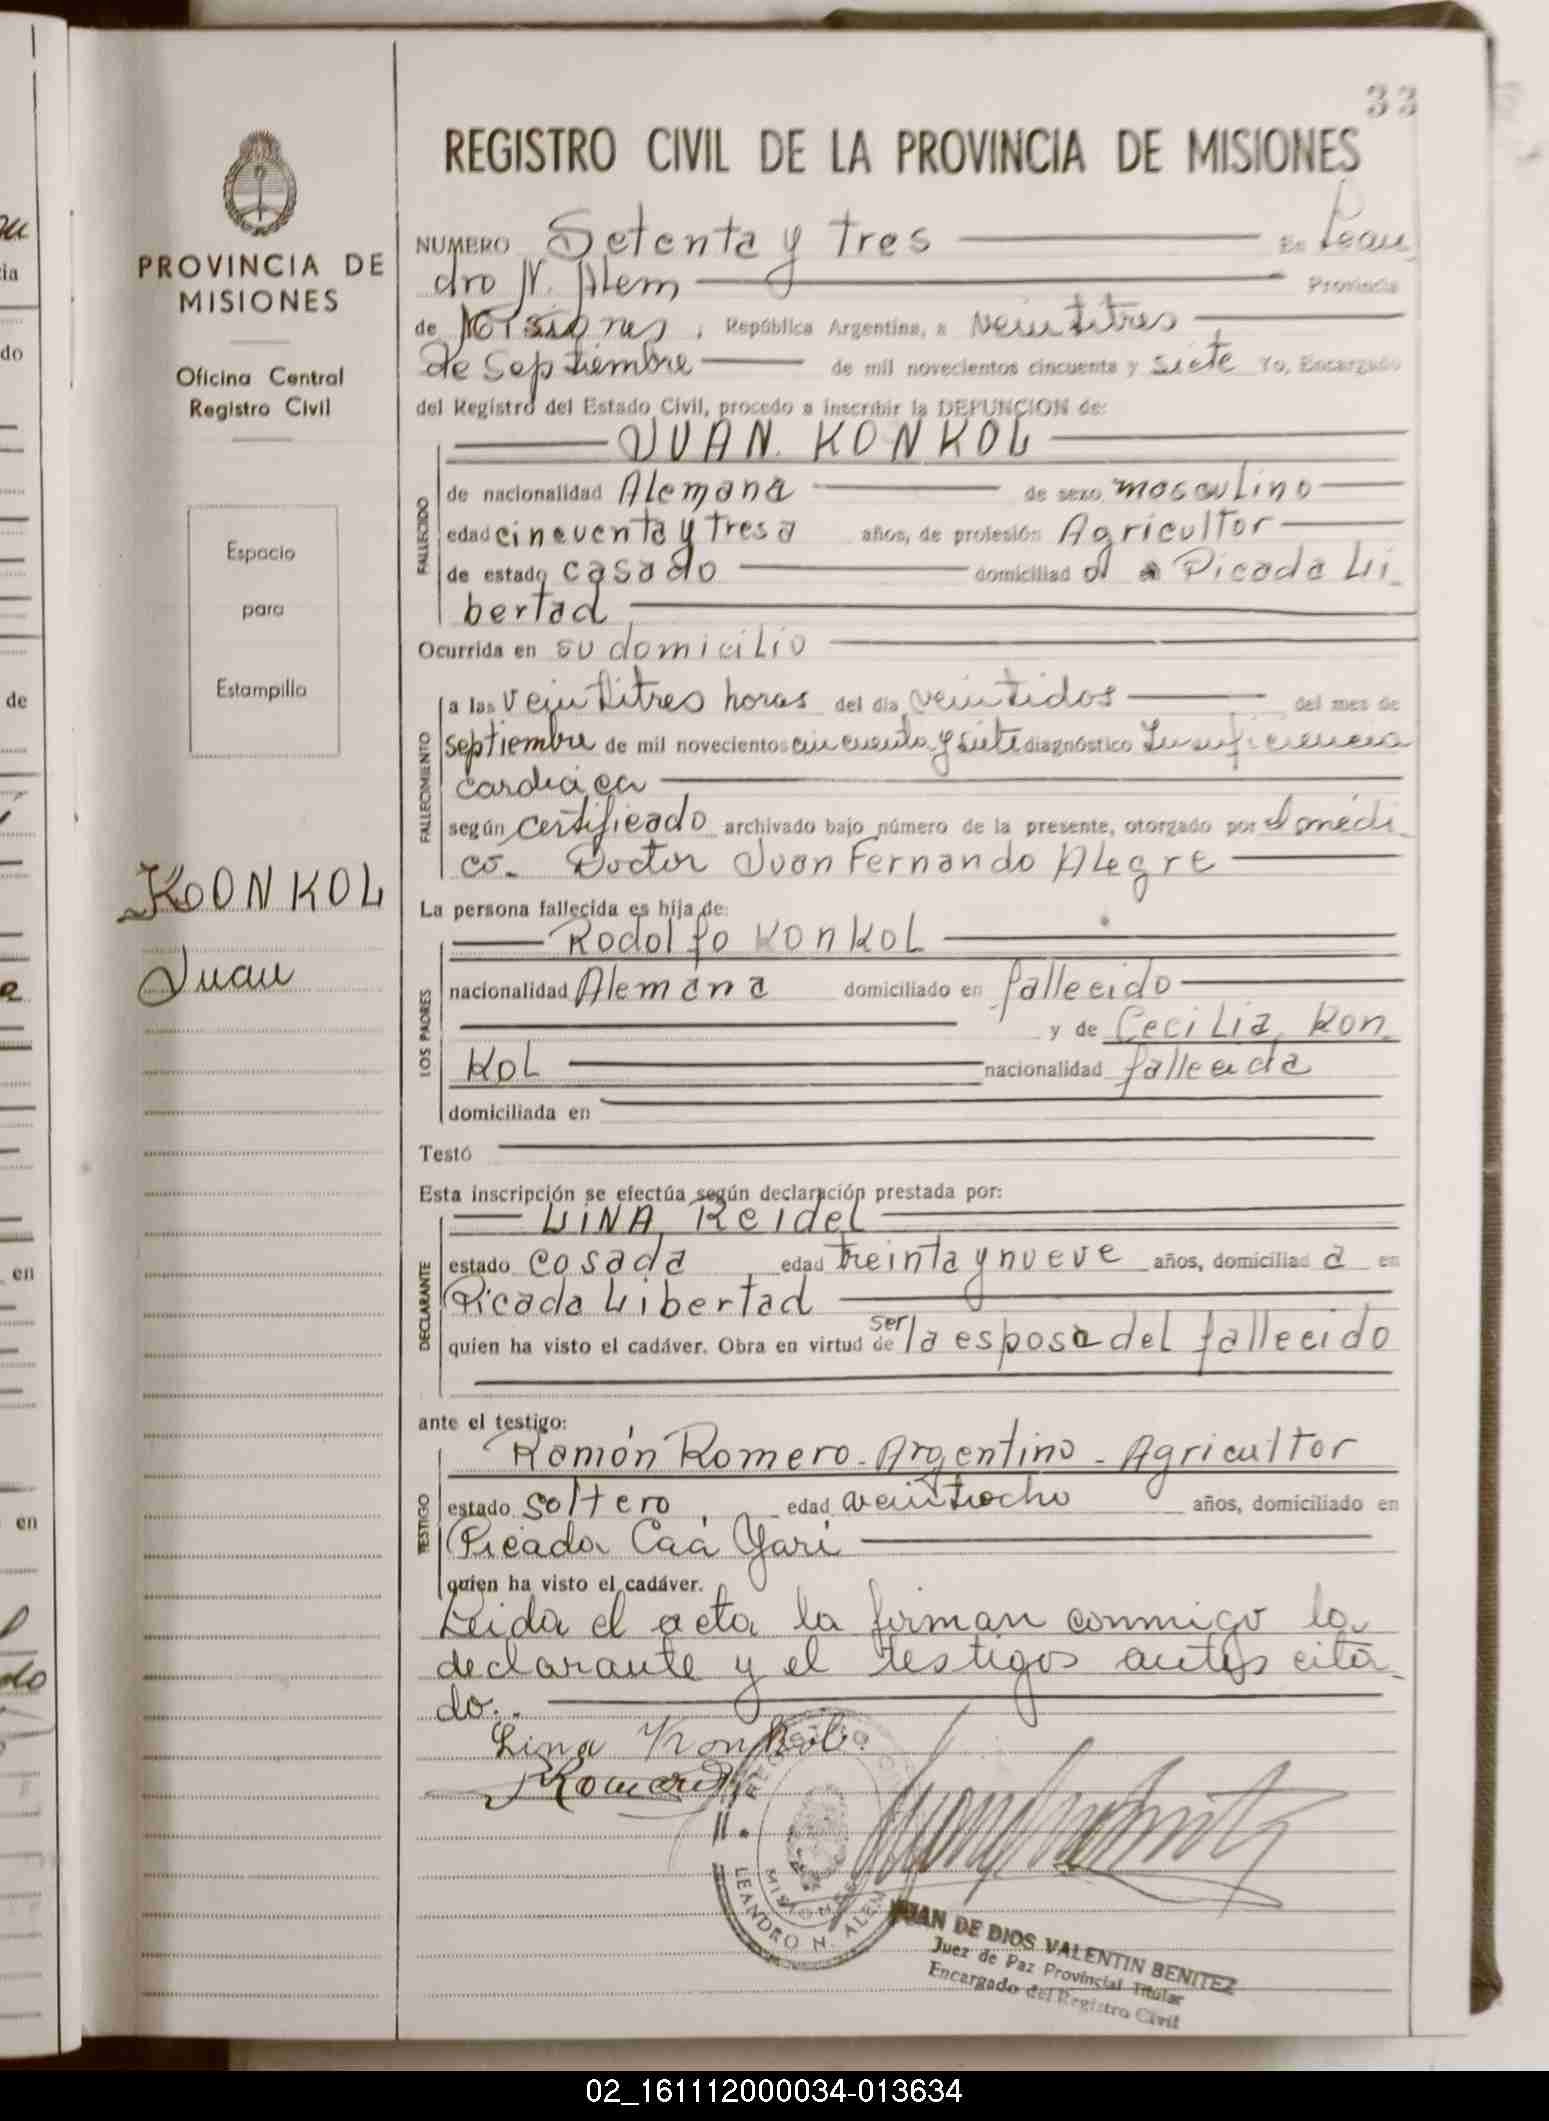 33
REGISTRO CIVIL DE LA PROVINCIA DE MISIONES
PROVINCIA DE
MISIONES
Oficina Central
Registro Civil
Espacio
para
Estampilla
KOONKOL
Juan
NUMERO Setenta y tres En Lean
dro N. Alem Provincia
de Misiones, República Argentina, a veintitres
de Septiembre de mil novecientos cincuenta y siete Yo, Encargado
del Registro del Estado Civil, procedo a inscribir la DEFUNCION de:
JUAN. KONKOL
FALLECIDO
de nacionalidad Alemana de sexo masculino
edad cincuenta y tres a años, de profesión Agricultor
de estado casado domiciliad o a Picada Li
bertad
Ocurrida en su domicilio
FALLECIMIENTO
a las veintitres horas del día veintidos del mes de
septiembre de mil novecientos cincuenta y siete diagnóstico Insuficiencia
cardiaca
según certificado archivado bajo número de la presente, otorgado por el médi
co. Doctor Juan Fernando Alegre
La persona fallecida es hija de:
LOS PADRES
Rodolfo Konkol
nacionalidad Alemana domiciliado en fallecido
y de Cecilia Kon
Kol nacionalidad fallecida
domiciliada en
Testó
Esta inscripción se efectúa según declaración prestada por:
DECLARANTE
LINA Reidel
estado casada edad treinta y nueve años, domiciliad a en
Picada Libertad
quien ha visto el cadáver. Obra en virtud de ser la esposa del fallecido
ante el testigo:
TESTIGO
Ramón Romero - Argentino - Agricultor
estado soltero edad veintiocho años, domiciliado en
Picada Caá Yarí
quien ha visto el cadáver.
Leida el acta la firman conmigo la
declarante y el testigos antes cita
do..
Lina Konkol.
LEANDRO N. ALEM
MISIONES
JUAN DE DIOS VALENTIN BENITEZ
Juez de Paz Provincial Titular
Encargado del Registro Civil
02_161112000034-013634